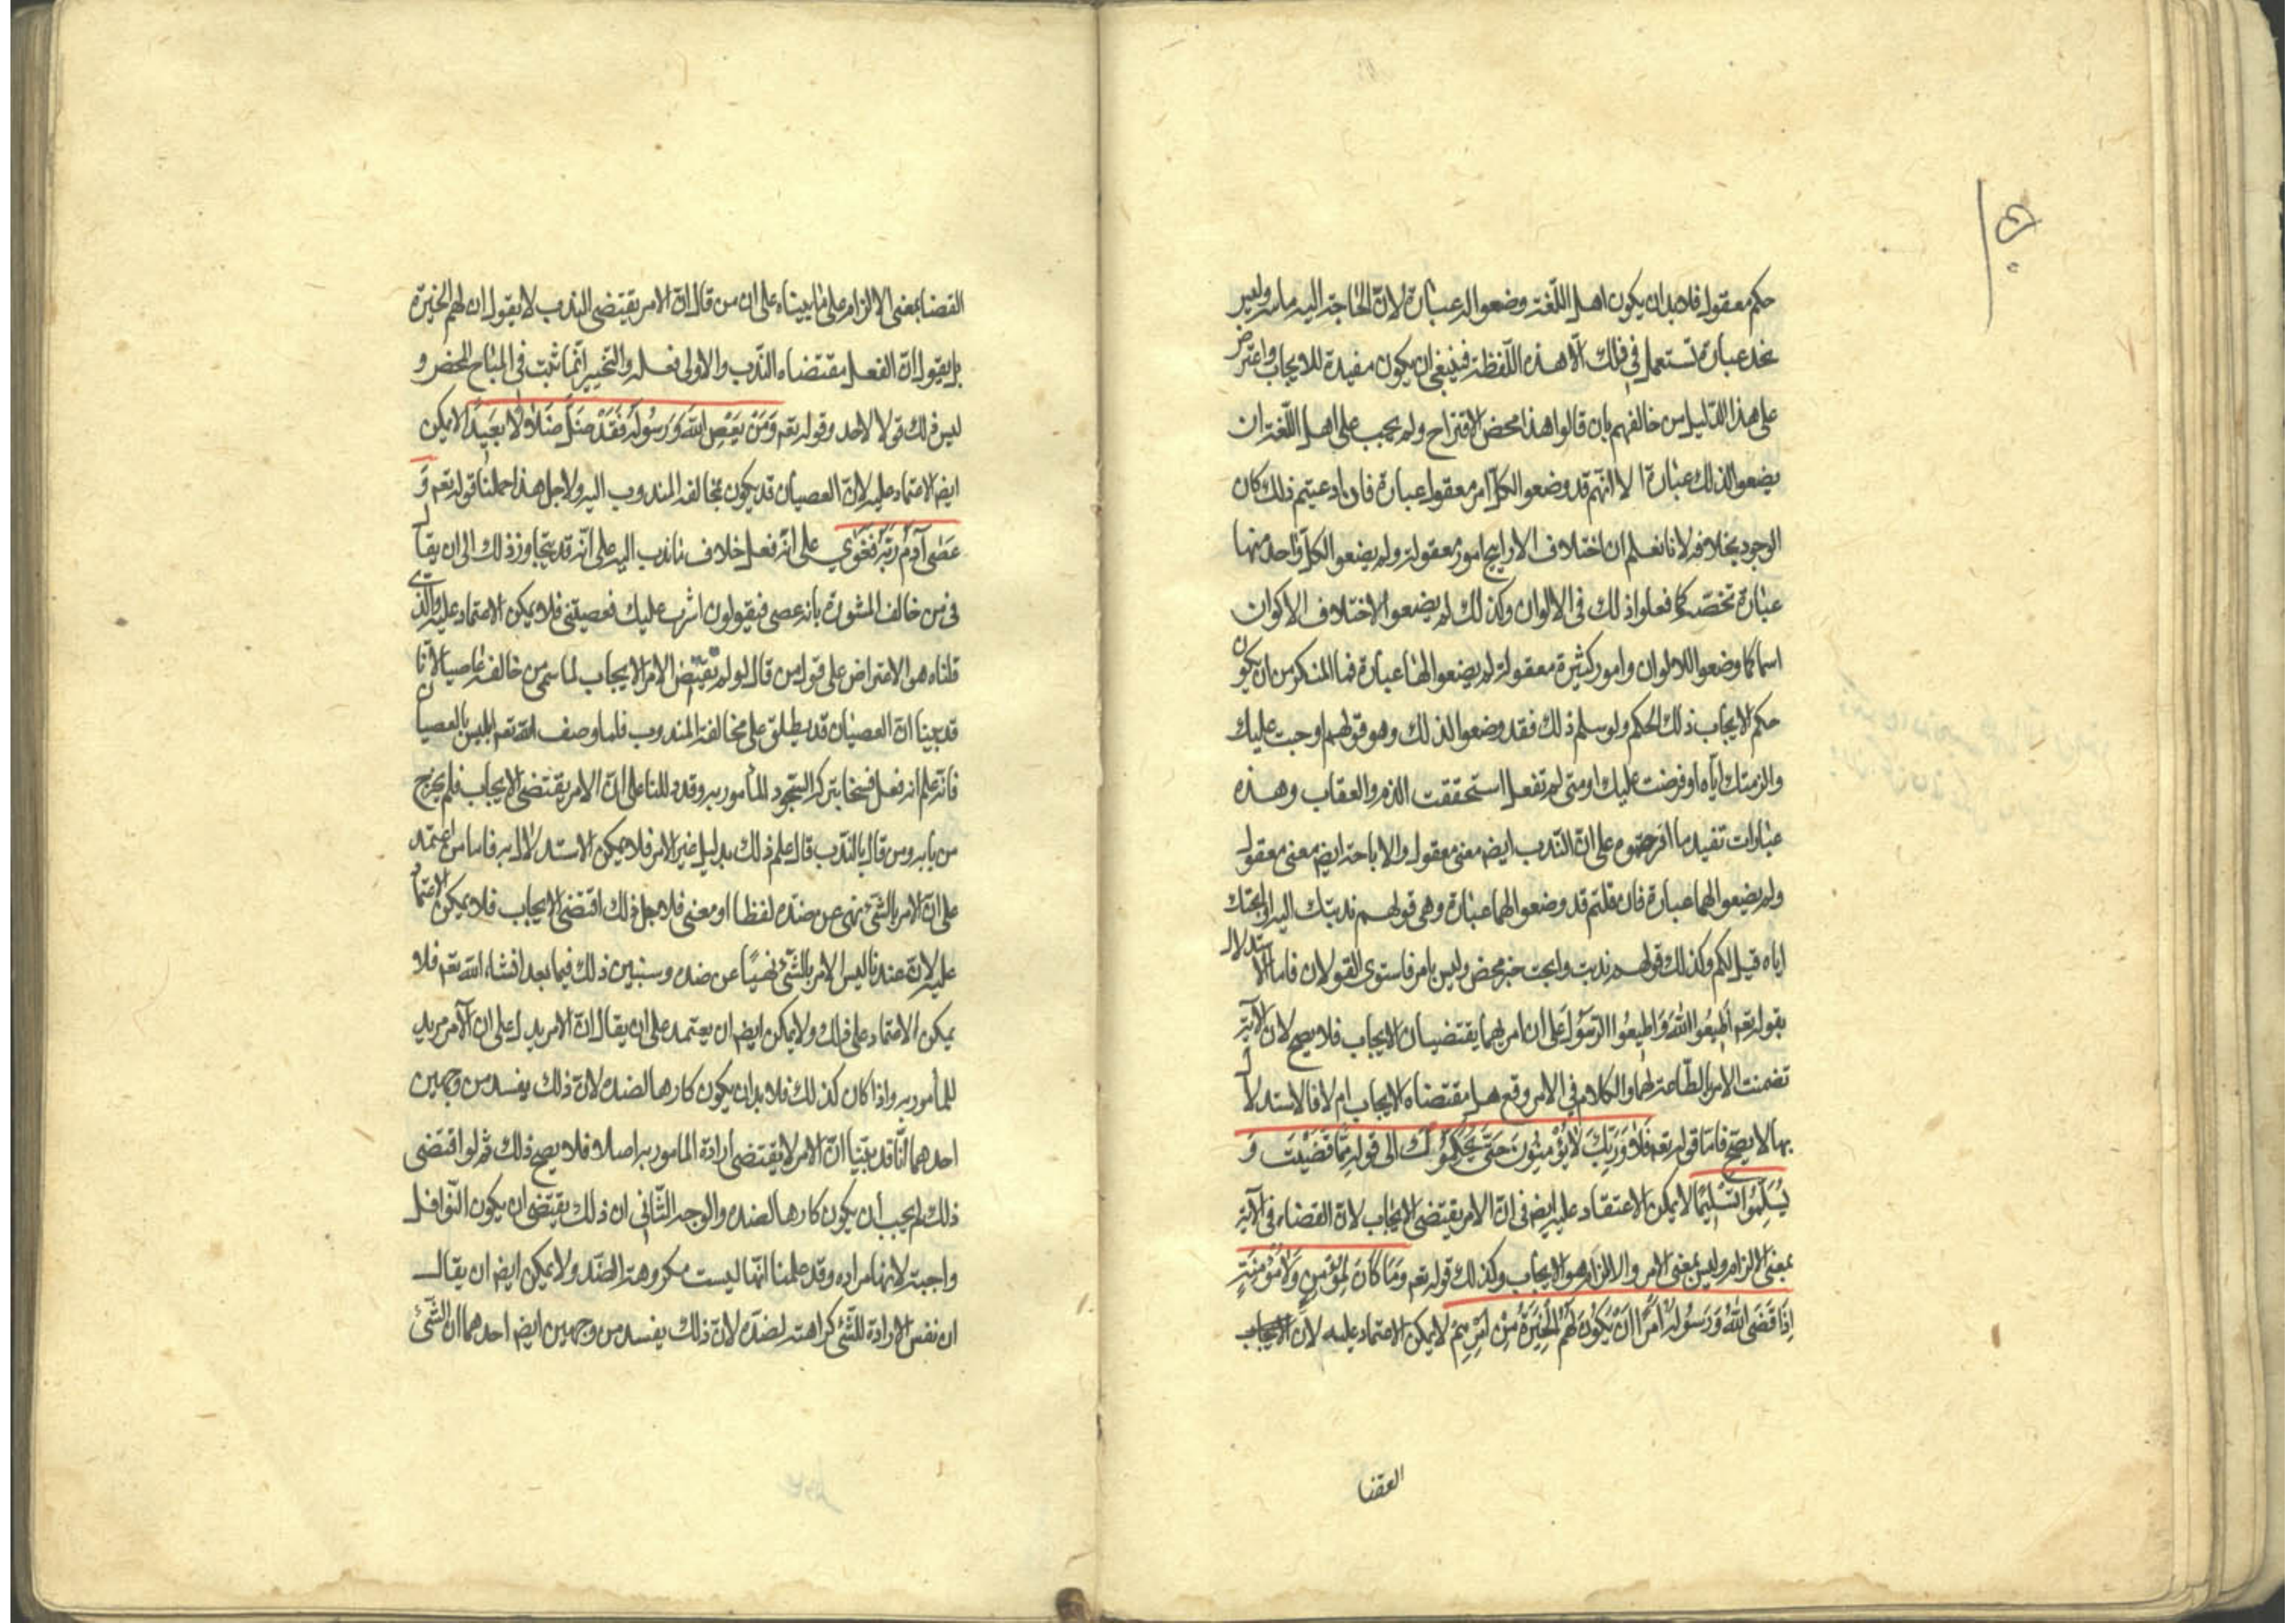 حكم معقول فلا بد ان يكون اهل اللّغة وضعوا له عبارة لانّ الحاجة اليه ماسة وليس
نجد عبارة تستعمل فى ذلك الّا هذه اللّفظة فينبغى ان يكون مفيدة للايجاب واعترض
على هذا الدّليل من خالفهم بان قالوا هذا محض الاقتراح ولم يجب على اهل اللّغة ان
يضعوا لذلك عبارة الا انّهم قد وضعوا لكلّ امر معقول عبارة فان ادعيتم ذلك كان
الوجود بخلافه لانا نعلم ان اختلاف الاراييح امور معقولة ولم يضعوا لكلّ واحد منها
عبارة تخصّه كما فعلوا ذلك فى الالوان وكذلك لم يضعوا لاختلاف الاكوان
اسما كما وضعوا للالوان وامور كثيرة معقولة لم يضعوا لها عبارة فما المنكر من ان يكون
حكم الايجاب ذلك الحكم ولو سلم ذلك فقد وضعوا لذلك وهو قولهم اوجبت عليك
والزمتك ايّاه او فرضت عليك او متى لم تفعل استحققت الذم والعقاب وهذه
عبارات تفيد ما اقرحتموه على انّ النّدب ايضم معنى معقول والاباحة ايضم معنى معقول
ولم يضعوا لهما عبارة فان قلتم قد وضعوا لهما عبارة وهى قولهم ندبتك اليه او ابحتك
اياه قيل لكم وكذلك قولهم ندبت وابحت خبر محض وليس بامر فاستوى القولان فاما الاستدلال
بقوله تعم اَطيعُوا اللهَ وَاَطيعُوا الرّسُولَ على ان امرهما يقتضيان الايجاب فلا يصح لان الآية
تضمنت الامر بالطّاعة لهما والكلام فى الامر وقع هل مقتضاه الايجاب ام لا فالاستدلال
بها لا يصحّ فامّا قوله تعم فَلا وَرَبِّكَ لا يُؤْمِنُونَ حَتّى يُحَكِّمُوكَ الى قوله مِمّا قَضَيْتَ وَ
يُسَلِّمُوا تَسْليمًا لا يمكن الاعتقاد عليه ايضم فى انّ الامر يقتضى الايجاب لانّ القضاء فى الآية
بمعنى الالزام وليس بمعنى الامر والالزام هو الايجاب وكذلك قوله تعم وَمَا كَانَ لِمُؤْمِنٍ وَلا مُؤْمِنَةٍ
اِذَا قَضَى اللهُ وَرَسُولُهُ اَمْرًا اَنْ يَكُونَ لَهُمُ الْخِيَرَةُ مِنْ اَمْرِهِمْ لا يمكن الاعتماد عليه لان
القضا
القضا بمعنى الالزام على ما بيناه على ان من قال انّ الامر يقتضى الندب لا يقول ان لهم الخيرة
بل يقول انّ الفعل مقتضاه النّدب والاولى فعله والتّخيير انّما ثبت فى المباح المحض و
ليس ذلك قولا لاحد وقوله تعم وَمَنْ يَعْصِ اللهَ وَرَسُولَهُ فَقَدْ ضَلَّ ضَلالًا بَعيدًا لا يمكن
ايضم الاعتماد عليه لانّ العصيان قد يكون بمخالفة المندوب اليه ولاجل هذا حملنا قوله تعم وَ
عَصٰى آدَمُ رَبَّهُ فَغَوٰى على انّه فعل خلاف ما ندب اليه على انّه قد يتجاوز ذلك الى ان يقال
فى من خالف المشورة بانه عصى فيقولون اشرت عليك فعصيتنى فلا يمكن الاعتماد عليه والّذى
قلناه هو الاعتراض على قول من قال لو لم يقتض الامر الايجاب لما سمى من خالفه عاصيا لانّا
قد بينا انّ العصيان قد يطلق على مخالفة المندوب فلما وصف الله تعم ابليس بالعصيان
فانّه علم انه فعل قبيحا بتركه السّجود المأمور به وقد دللنا على انّ الامر يقتضى الايجاب فلم يخرج
من بابه ومن قال بالنّدب قال علم ذلك بدليل غير الامر فلا يمكن الاستدلال به فاما من اعتمد
على انّ الامر بالشّئ نهى عن ضدّه لفظا او معنى فلاجل ذلك اقتضى الايجاب فلا يمكن الاعتماد
عليه لانّ عندنا ليس الامر بالشّئ نهيًا عن ضده وسنبين ذلك فيما بعد انشاء الله تعم فلا
يمكن الاعتماد على ذلك ولا يمكن ايضم ان يعتمد على ان يقال انّ الامر يدل على ان الآمر مريد
للمأمور به واذا كان كذلك فلا بد ان يكون كارها لضده لانّ ذلك يفسد من وجهين
احدهما انّا قد بيّنا انّ الامر لا يقتضى ارادة المامور به اصلا فلا يصح ذلك ثم لو اقتضى
ذلك لم يجب ان يكون كارها لضده والوجه الثّانى ان ذلك يقتضى ان يكون النّوافل
واجبة لانها مرادة وقد علمنا انّها ليست مكروهة الضّد ولا يمكن ايضم ان يقال
ان نفس الارادة للشّئ كراهة لضدّه لانّ ذلك يفسد من وجهين ايضم احدهما ان الشّئ